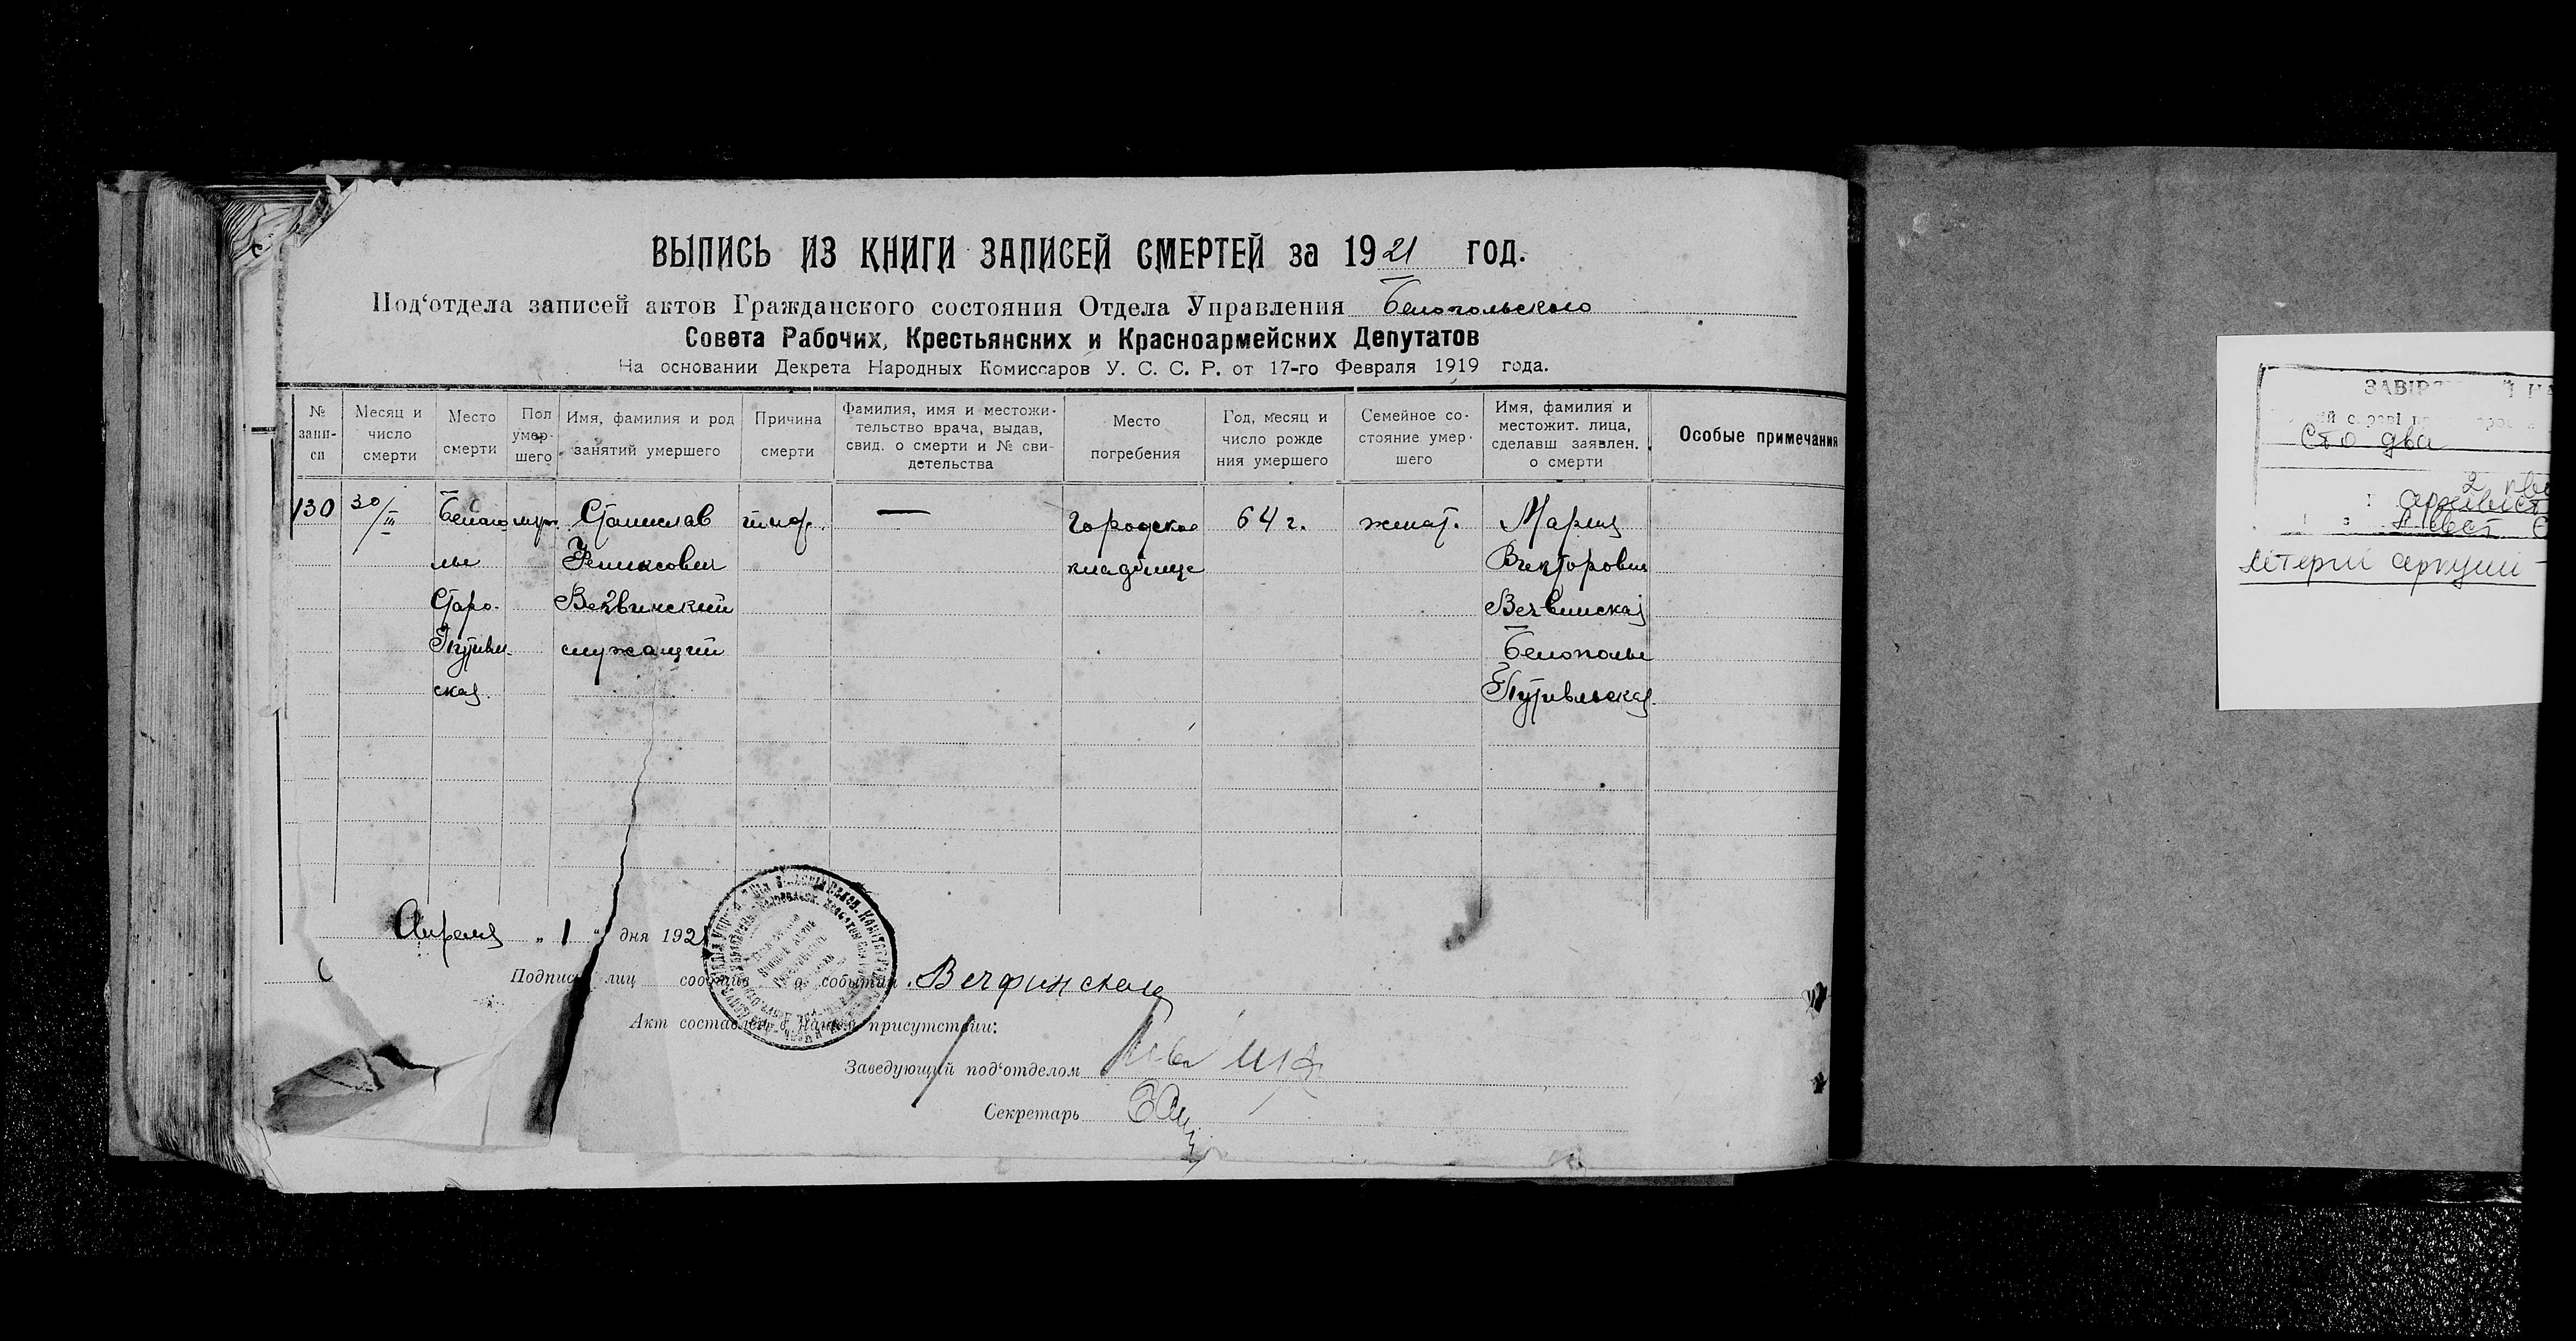 ВЫПИСЬ ИЗ КНИГИ ЗАПИСЕЙ СМЕРТЕЙ за 1921 ГОД.
Под‘отдела записей актов Гражданского состояния Отдела Управления Белопольского
Совета Рабочих, Крестьянских и Красноармейских Депутатов
На основании Декрета Народных Комиссаров У. С. С. Р. от 17-го Февраля 1919 года.
№ запи-си
Месяц и число смерти
Место смерти
Пол умер-шего
Имя, фамилия и род занятий умершего
Причина смерти
Фамилия, имя и местожи-тельство врача, выдав, свид. о смерти и № сви-детельства
Место погребения
Год, месяц и число рожде ния умершего
Семейное со-стояние умер-шего
Имя, фамилия и местожит. лица, сделавш заявлен. о смерти
Особые примечания
130 30/III Белопо муж. Станислав тиф. — городское 64 г. женат. Мария
лье Феликсович кладбище Викторовна
Старо- Вечвинский Вечвинская
Путивл- служащий Белополье
ская. Путивльская.
Апреля „ 1 “ дня 1921
Подписи лиц сообщив. о событии. Вечфинская
Акт составлен в нашем присутствии:
Заведующий под‘отделом
Секретарь
Сто два